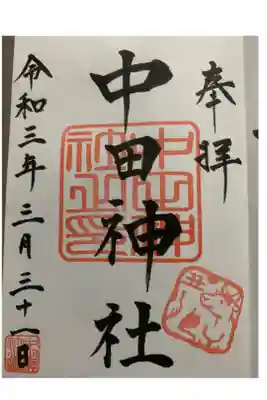 奉拝
中田神社
令和三年三月三十一日
丑